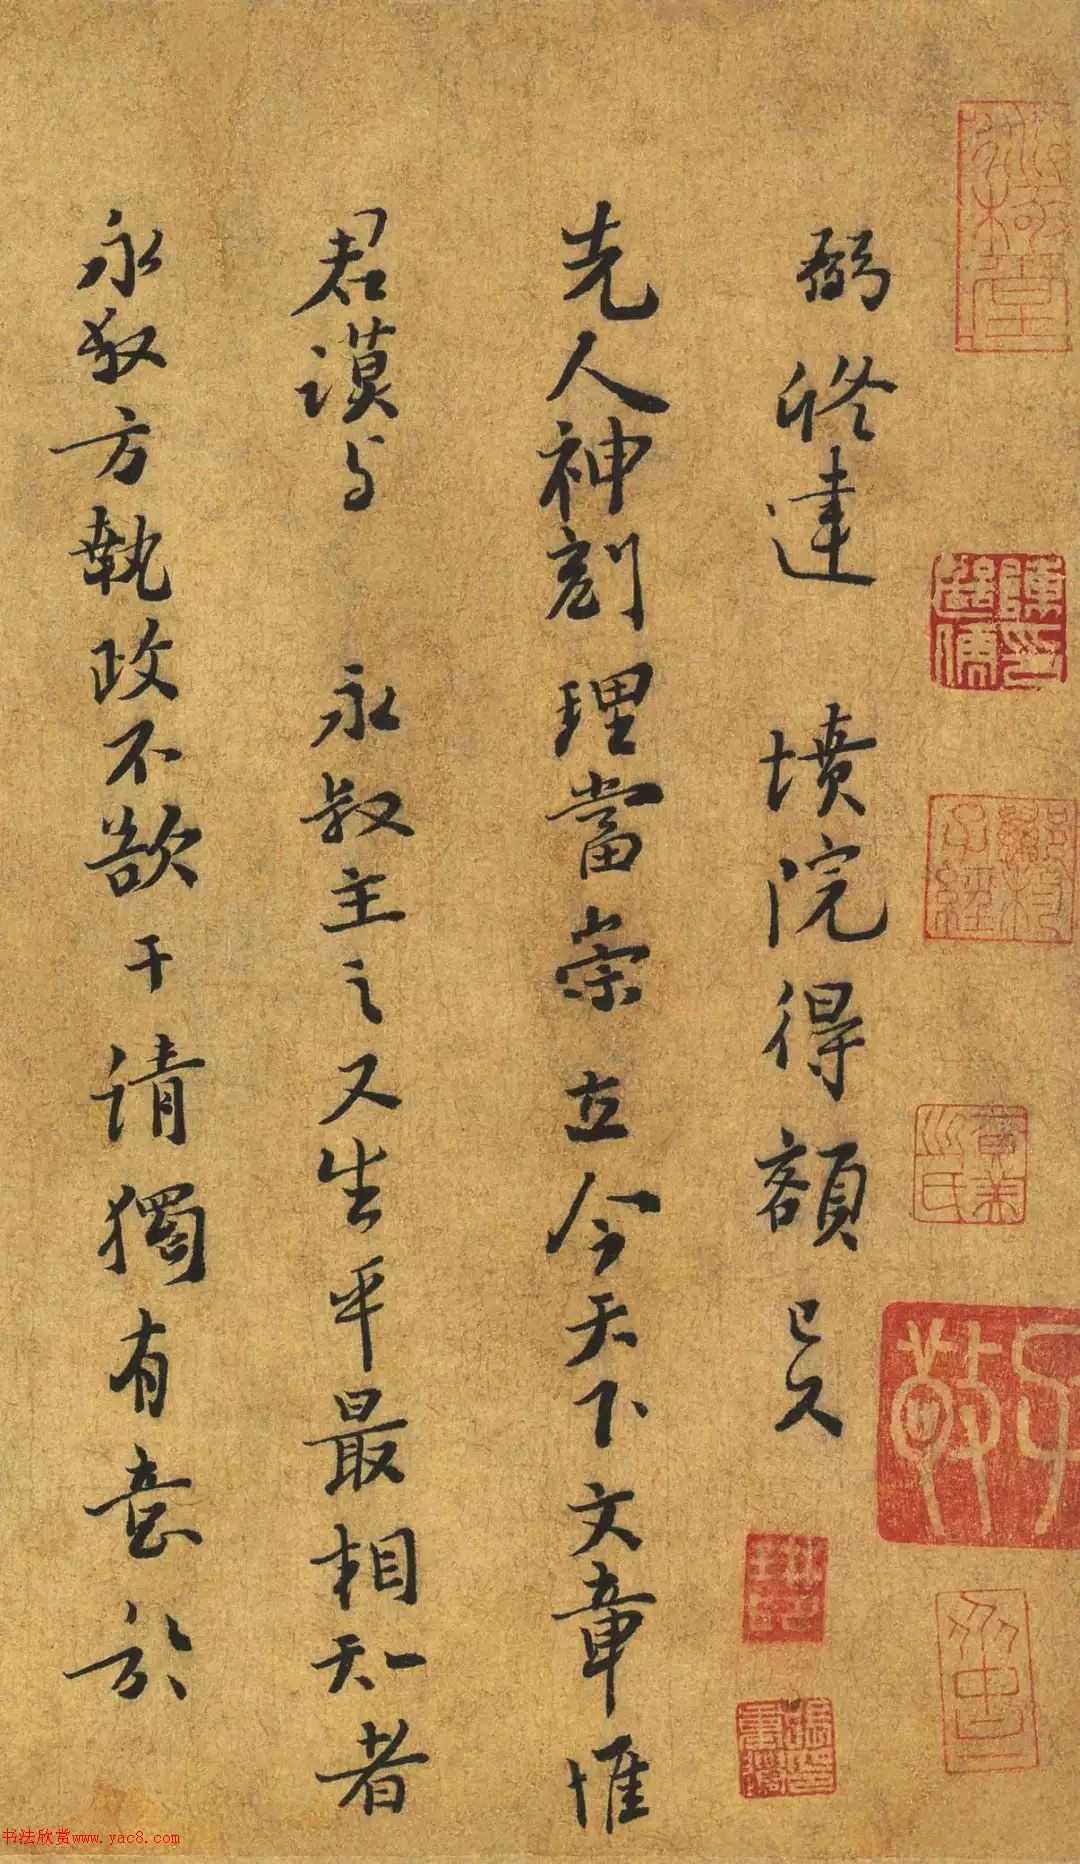 弼修建 墳院得額已久
先人神刻理當崇立今天下文章惟
君謨与 永叔主之又生平最相知者
永叔方執政不欲干請獨有意於
书法欣赏www.yac8.com